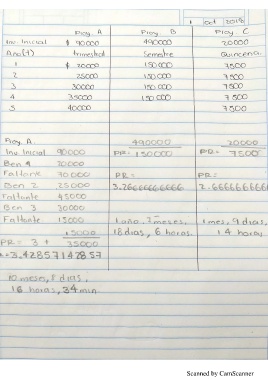 1 oct 2018
Proy. A Proy. B Proy C
Inv. Inicial $ 90000 490000 20000
Ano(s) trimestral Semestre Quincena
1 $ 20000 150000 7500
2 25000 150000 7500
3 30000 150000 7500
4 35000 150000 7500
5 40000 7500
Proy. A
Inv. Inicial 90000
Ben 1 20000
Faltante 70000
Ben 2 25000
Faltante 45000
Ben 3 30000
Faltante 15000
PR= 3 + 15000
35000
=3.42857142857
10 meses, 8 dias,
16 horas, 34 min
490000
PR= 150000
PR=
3.26666666666
1 año, 7 meses,
18 dias, 6 horas.
20000
PR= 7500
PR=
2.6666666666
1 mes, 9 dias,
14 horas
Scanned by CamScanner